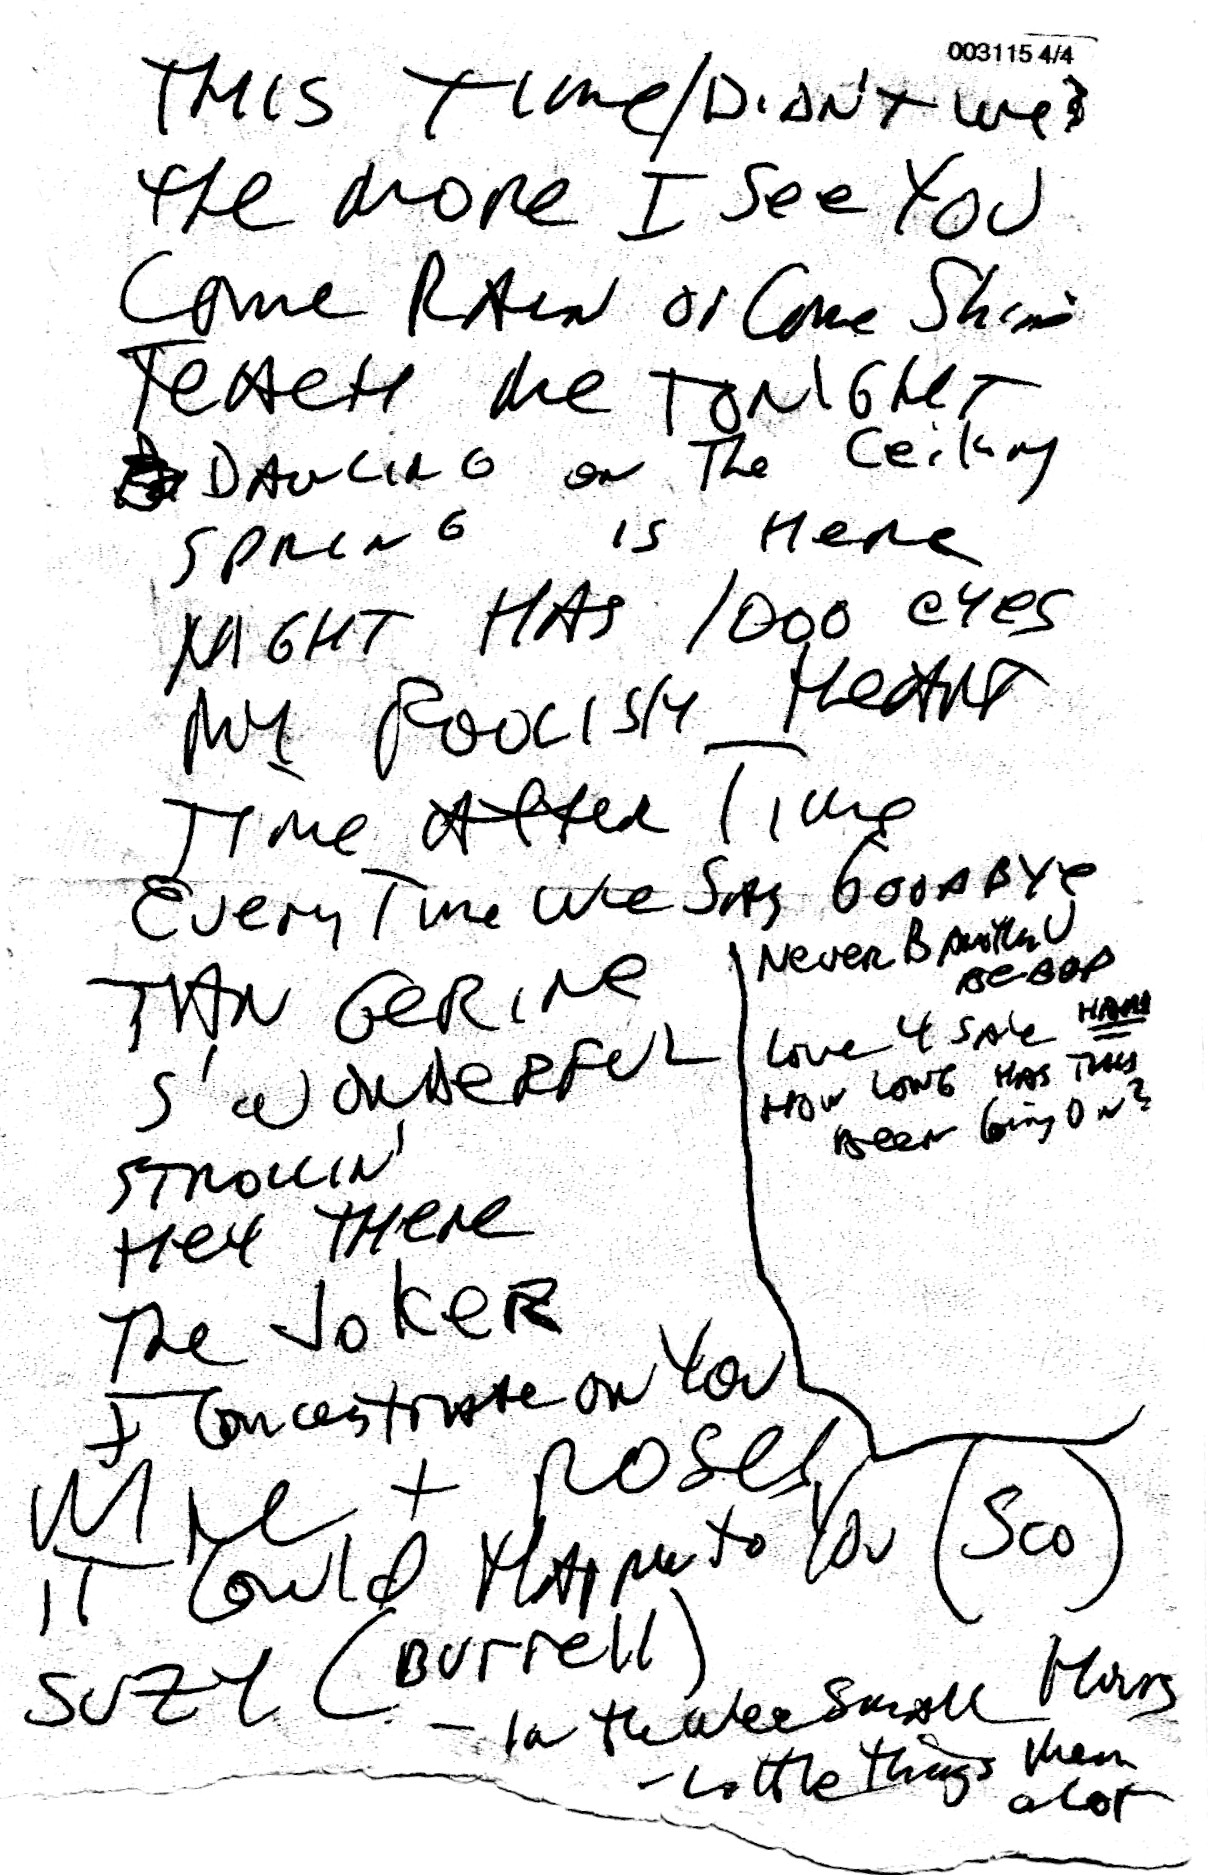 003115 4/4
THIS TIME/DIDN'T WE?
THE MORE I SEE YOU
COME RAIN OR COME Shine
TEACH ME TONIGHT
DANCING ON THE Ceiling
SPRING IS HERE
NIGHT HAS 1000 EYES
MY FOOLISH HEART
TIME AFTER TIME
EVERY TIME WE SAY GOODBYE
TANGERINE
S'WONDERFUL
STROLLIN'
HEY THERE
THE JOKER
I CONCENTRATE ON YOU
WINE + ROSES
IT Could Happen to You (Sco)
SUZY (Burrell)
- In the Wee Small Hours
- Little things mean
a lot
NEVER B Another U
BE-BOP
LOVE 4 SALE
HOW LONG HAS THIS
BEEN Going ON?